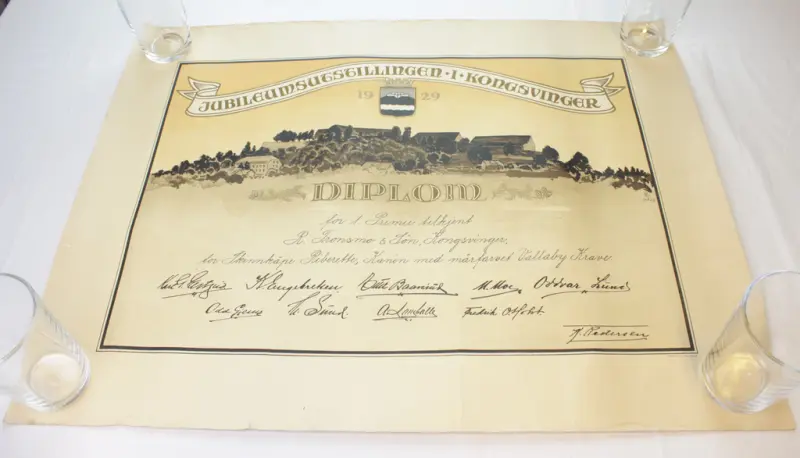 JUBILEUMSUTSTILLINGEN · I · KONGSVINGER
1929
DIPLOM
for 1. Premie tilkjent
R. Tronsmo & Søn, Kongsvinger,
for Skinnkåpe Peberette, Kanin med mårfarvet Vallaby Krave
K. Engebretsen M. Moe Oddvar Lund
M. Sund Fredrik Østfoldt
A. Pedersen